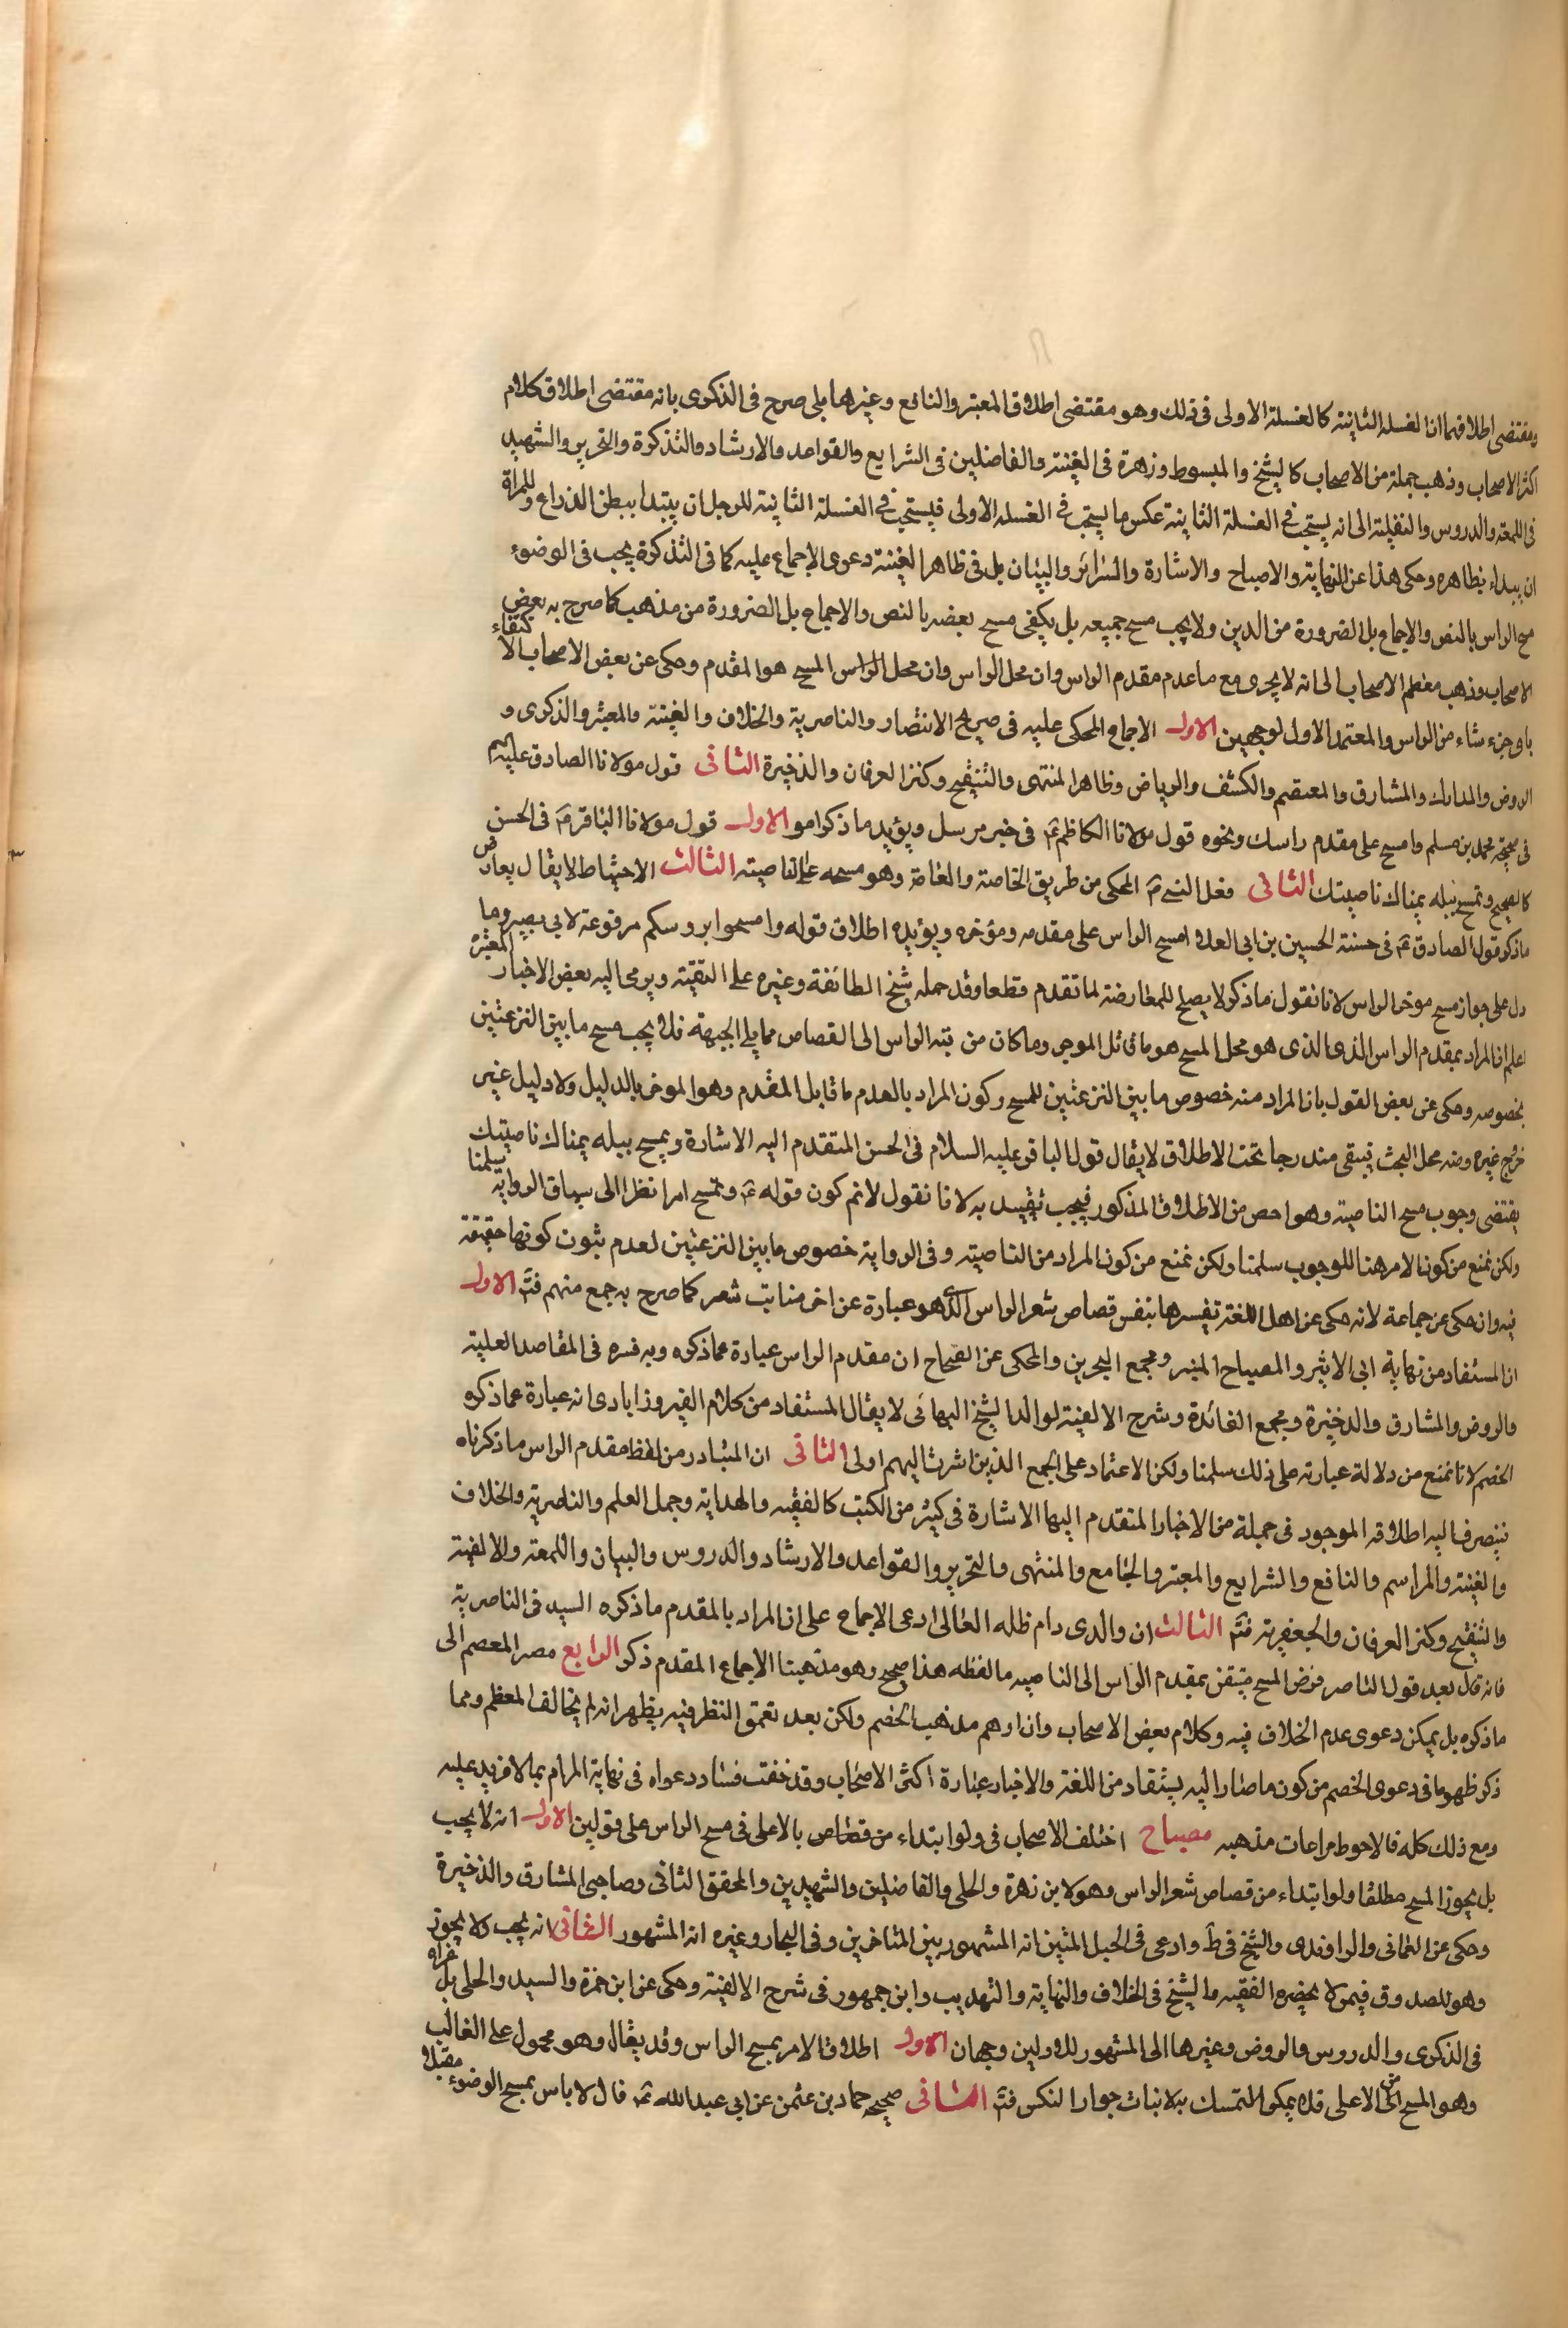 ومقتضى اطلاقهما ان الغسلة الثانية كالغسلة الاولى فى ذلك وهو مقتضى اطلاق المعتبر والنافع وغيرها بلى صرح فى الذكرى بانه مقتضى اطلاق كلام
اكثر الاصحاب وذهب جملة من الاصحاب كالشيخ والمبسوط وزهرة فى الغنية والفاضلين فى الشرايع والقواعد والارشاد والتذكرة والتحرير والشهيد
فى اللمعة والدروس والنفلية الى انه يستحب فى الغسلة الثانية عكس ما يستحب فى الغسله الاولى فيستحب فى الغسلة الثانية للرجل ان يبتدا ببطن الذراع وللمراة
ان يبداء بظاهره وحكى هذا عن النهاية والاصباح والاشارة والسرائر والبيان بل فى ظاهر الغنية دعوى الاجماع عليه كما فى التذكرة يجب فى الوضوء
مسح الراس بالنص والاجماع بل الضرورة من الدين ولا يجب مسح جميعه بل يكفى مسح بعضه بالنص والاجماع بل الضرورة من مذهب كما صرح به بعض
الاصحاب وذهب معظم الاصحاب الى انه لا يجزى مع ما عدم مقدم الراس وان محل الراس وان محل الراس المسح هو المقدم وحكى عن بعض الاصحاب الا كتفاء
باى جزء شاء من الراس والمعتمد الاول لوجهين الاول الاجماع المحكى عليه فى صريح الانتصار والناصرية والخلاف والغنية والمعتبر والذكرى و
الروض والمدارك والمشارق والمعتصم والكشف والرياض وظاهر المنتهى والتنقيح وكنز العرفان والذخيرة الثانى قول مولانا الصادق عليهم
فى صحيحة محمد بن مسلم وامسح على مقدم راسك ونحوه قول مولانا الكاظم ع فى خبر مرسل ويؤيد ما ذكر امور الاول قول مولانا الباقر ع فى الحسن
كالصحيح وتمسح ببله يمناك ناصيتك الثانى فعل النبى ص المحكى من طريق الخاصة والعامة وهو مسحه على الناصيته الثالث الاحتياط لا يقال يعارض
ما ذكر قول الصادق ع فى حسنة الحسين بن ابى العلا امسح الراس على مقدمه ومؤخره ويؤيده اطلاق قوله وامسحوا بروسكم مرفوعة لابى بصير وما
دل على جواز مسح موخر الراس لانا نقول ما ذكر لا يصلح للمعارضة لما تقدم قطعا وقد حمله شيخ الطائفة وغيره على التقية ويرمى اليه بعض الاخبار المعتبره
اعلم ان المراد بمقدم الراس الذى الذى هو محل المسح هو ما قابل الموخر وما كان من قبة الراس الى القصاص مما يلى الجبهة فلا يجب مسح ما بين النزعتين
بخصوصه وحكى عن بعض القول بان المراد منه خصوص ما بين النزعتين للمسح وكون المراد بالمقدم ما قابل المقدم وهو الموخر بالدليل ولا دليل غير
خرج غيره ومنه محل البحث فيبقى مندرجا تحت الاطلاق لا يقال قول الباقر عليه السلام فى الحسن المتقدم اليه الاشارة ويمسح ببله يمناك ناصيتك
يقتضى وجوب مسح الناصية وهو اخص من الاطلاق المذكور فيجب تقييد به لانا نقول لانم كون قوله ع وتمسح امرا نظرا الى سياق الرواية سلمنا
ولكن نمنع من كون الامر هنا للوجوب سلمنا ولكن نمنع من كون المراد من الناصية وفى الرواية خصوص ما بين النزعتين لعدم ثبوت كونها حقيقة
فيه وان حكى عن جماعة لانه حكى عن اهل اللغة تفيسرها بنفس قصاص شعر الراس الذى هو عبارة عن اخر منابت شعر كما صرح به جمع منهم فتم الاول
ان المستفاد من نهاية ابى الاثير والمصباح المنير ومجمع البحرين والمحكى عن الصحاح ان مقدم الراس عبارة عما ذكره وبه فسره فى المقاصد العلية
والروض والمشارق والذخيرة ومجمع الفائدة وشرح الالفية لوالد الشيخ البهائى لا يقال المستفاد من كلام الفيروزابادى انه عبارة عما ذكره
الخصم لانا نمنع من دلالة عبارته على ذلك سلمنا ولكن الاعتماد على الجمع الذين اشرنا اليهم اولى الثانى ان المتبادر من لفظ مقدم الراس ما ذكرناه
فينصرف اليه اطلاقه الموجود فى جملة من الاخبار المتقدم اليها الاشارة فى كثير من الكتب كالفقيه والهداية وجمل العلم والناصرية والخلاف
والغنية والمراسم والنافع والشرايع والمعتبر والجامع والمنتهى والتحرير والقواعد والارشاد والدروس والبيان واللمعة والالفية
والتنقيح وكنز العرفان والجعفرية فتم الثالث ان والدى دام ظله العالى ادعى الاجماع على ان المراد بالمقدم ما ذكره السيد فى الناصرية
فانه قال بعد قول الناصر فرض المسح متيقن بمقدم الراس الى الناصيه ما لفظه هذا صحيح وهو مذهبنا الاجماع المقدم ذكر الرابع مصر المعصم الى
ما ذكره بل يمكن دعوى عدم الخلاف فيه وكلام بعض الاصحاب وان اوهم مذهب الخصم ولكن بعد تعمق النظر فيه يظهر انه لم يخالف المعظم ومما
ذكر ظهر ما فى دعوى الخصم من كون ما صار اليه يستفاد من اللغة والاخبار عبارة اكثر الاصحاب وقد خفت فساد دعواه فى نهاية المرام بما لا مزيد عليه
ومع ذلك كله فالاحوط مراعات مذهبه مصباح اختلف الاصحاب فى ولو ابتداء من قصاص بالاعلى فى مسح الراس على قولين الاول انه لا يجب
بل يجوز المسح مطلقا ولو ابتداء من قصاص شعر الراس وهو لابن زهرة والحلى والفاضلين والشهيدين والمحقق الثانى وصاحبى المشارق والذخيرة
وحكى عن العمانى والراوندى والشيخ فى ط وادعى فى الحبل المتين انه المشهور بين المتاخرين وفى البحار وغيره انه المشهور الثانى انه يجب ولا يجوز
وهو للصدوق فيمن لا يحضره الفقيه والشيخ فى الخلاف والنهاية والتهذيب وابن جمهور فى شرح الالفية وحكى عن ابن حمزة والسيد والحلى بل عزاه
فى الذكرى والدروس والروض وغيرها الى المشهور للاولين وجهان الاول اطلاق الامر بمسح الراس وقد يقال وهو محمول على الغالب
وهو المسح من الاعلى فلا يمكن التمسك به لاثبات جواز النكس فتم الثانى صحيح حماد بن عثمن عن ابى عبد الله ع قال لا باس بمسح الوضوء مقبلا